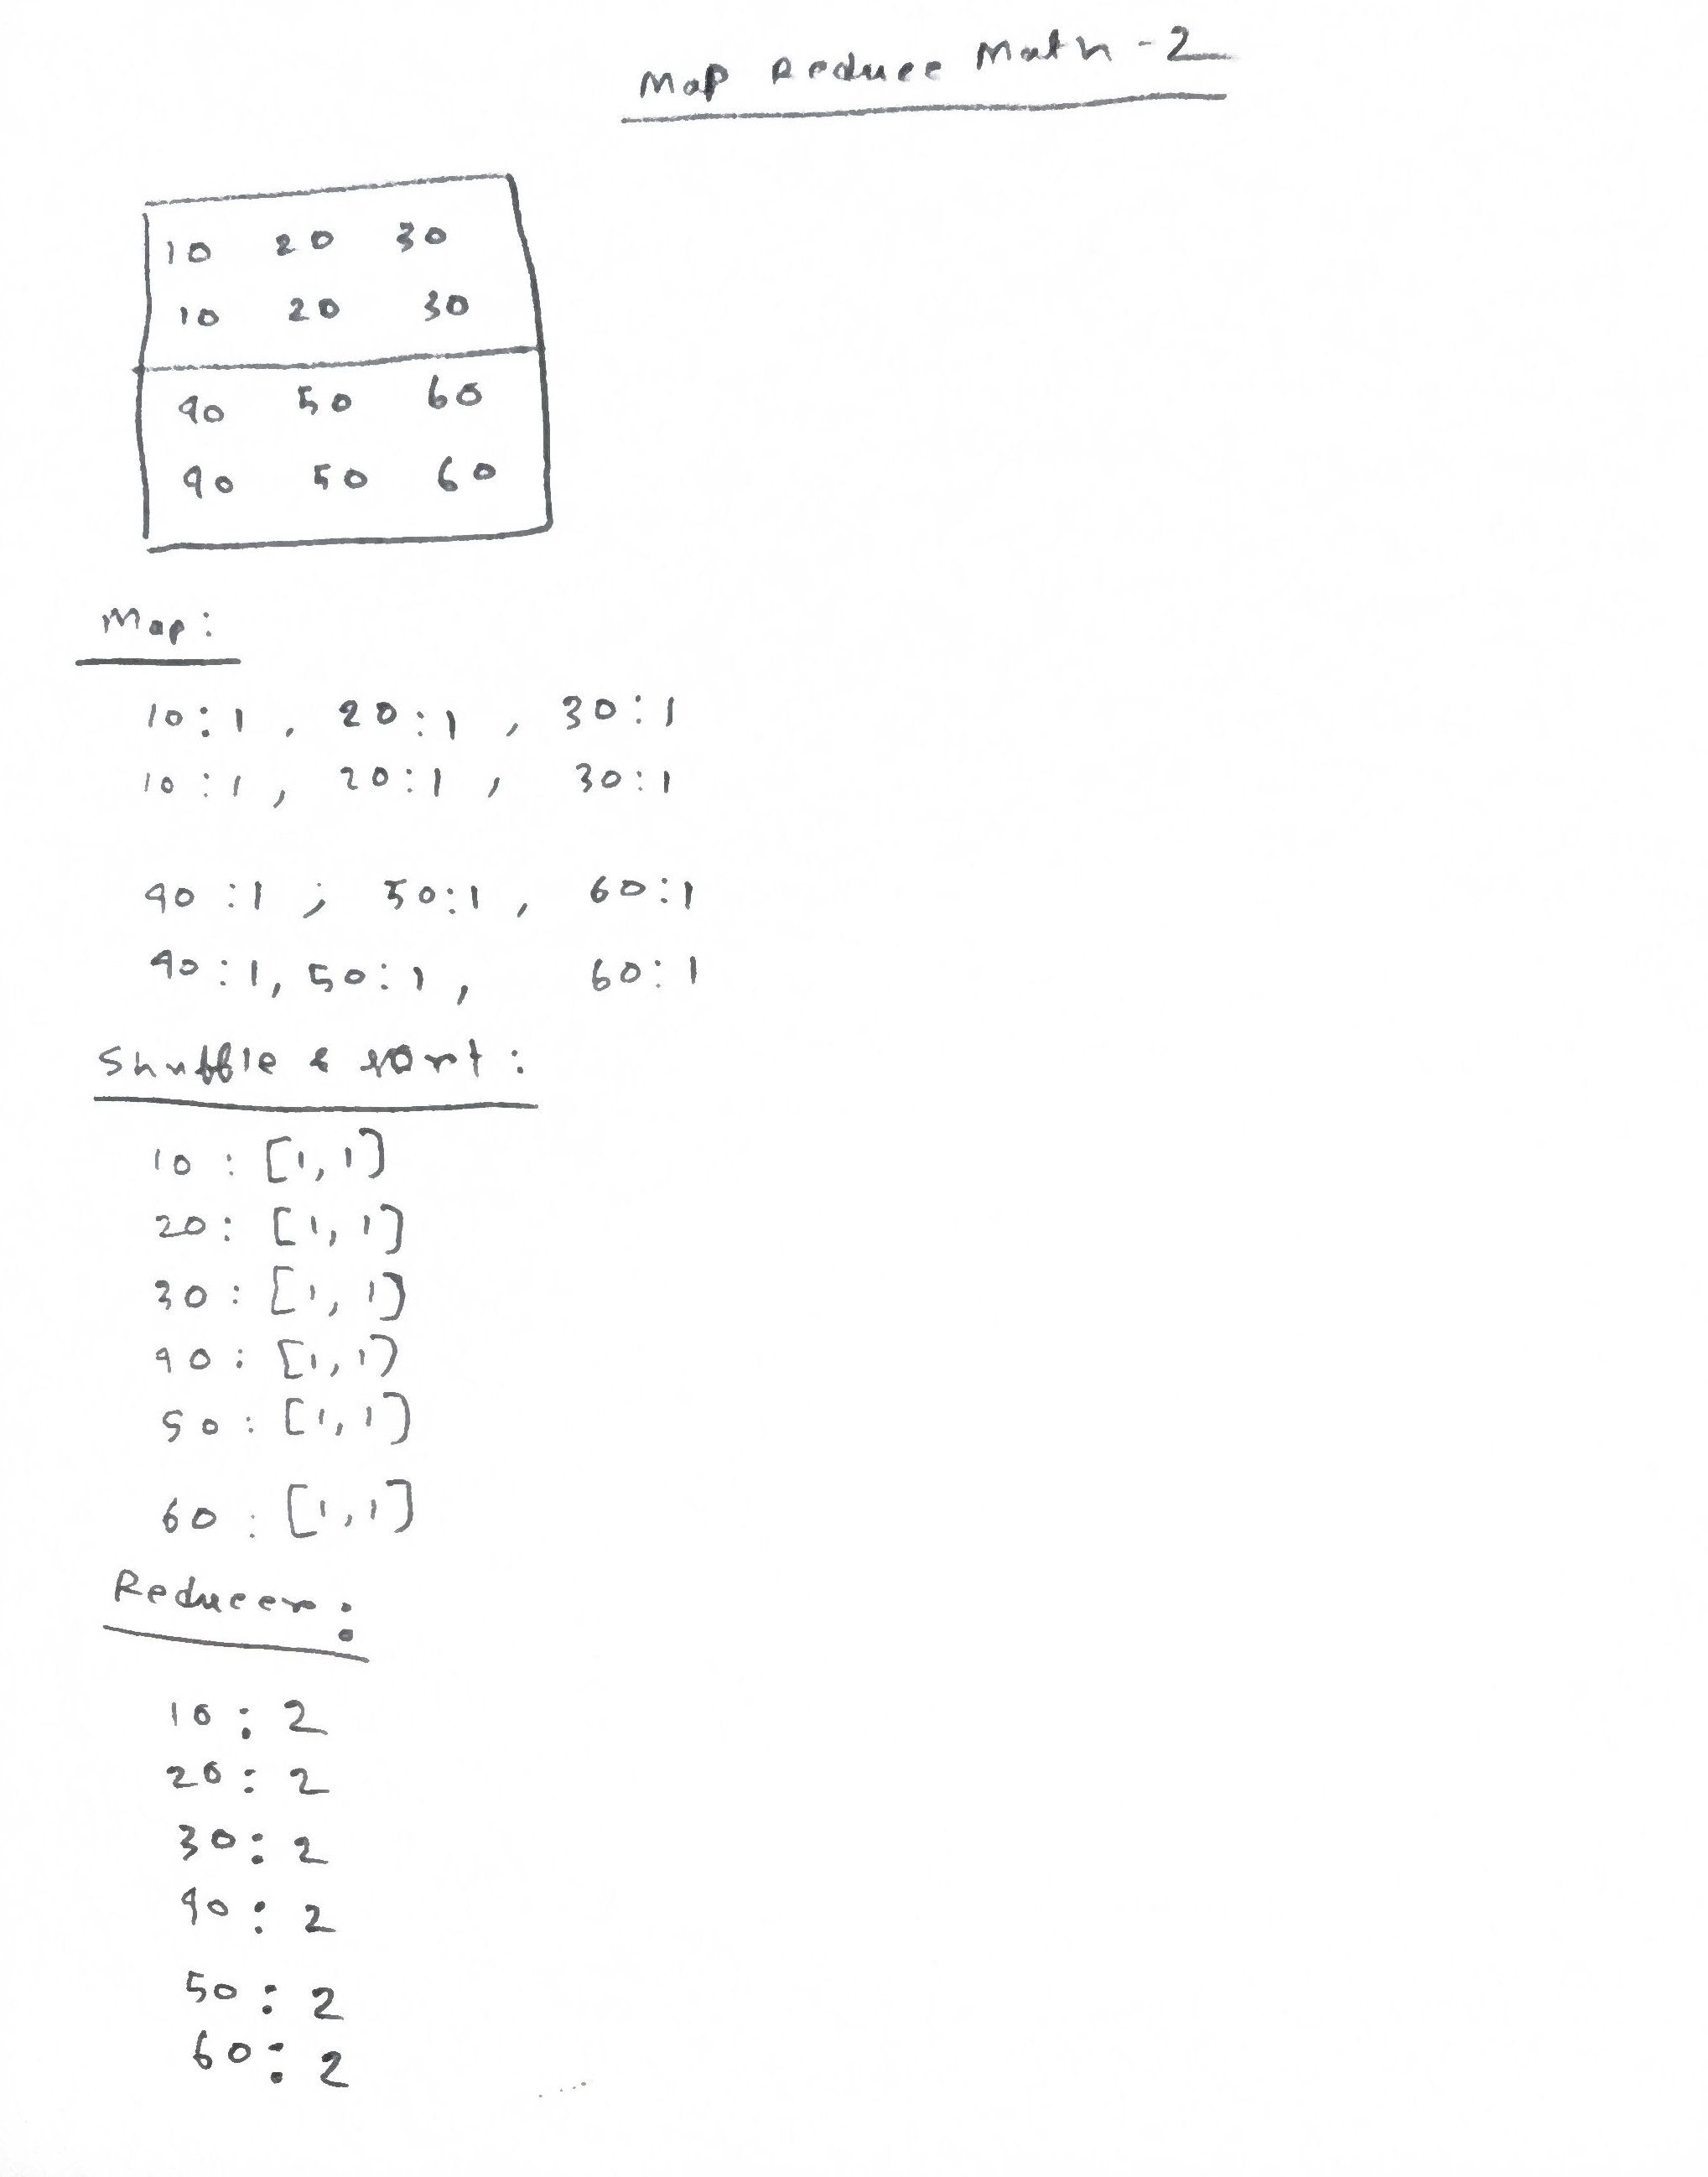 Map Reduce Math - 2
10 20 30
10 20 30
40 50 60
40 50 60
Map:
10:1, 20:1, 30:1
10:1, 20:1, 30:1
40:1; 50:1, 60:1
40:1, 50:1, 60:1
Shuffle & sort:
10: [1,1]
20: [1,1]
30: [1,1]
40: [1,1]
50: [1,1]
60: [1,1]
Reducer:
10: 2
20: 2
30: 2
40: 2
50: 2
60: 2